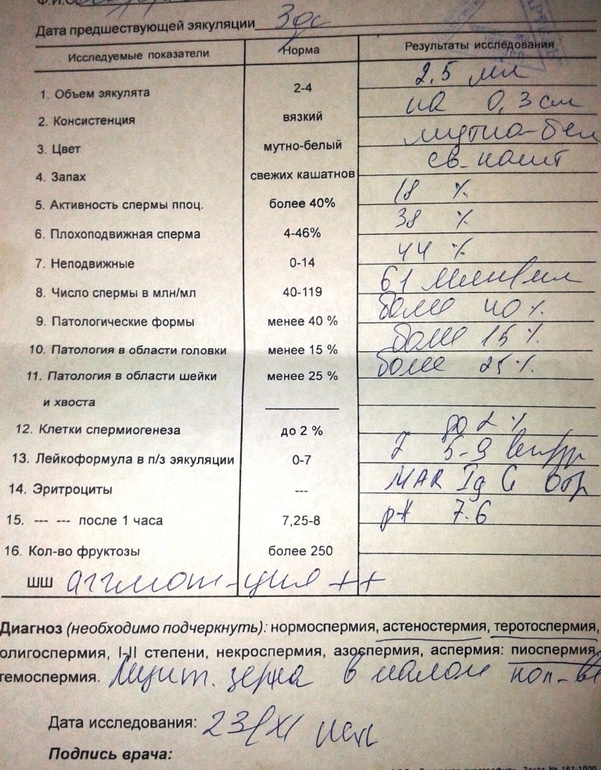 Дата предшествующей эякуляции 3 дс
Исследуемые показатели Норма Результаты исследования
1. Объем эякулята 2-4 2,5 мл
2. Консистенция вязкий на 0,3 см
3. Цвет мутно-белый мутно-бел
4. Запах свежих кашатнов св. кашт
5. Активность спермы ппоц. более 40% 18 %
6. Плохоподвижная сперма 4-46% 38 %
7. Неподвижные 0-14 44 %
8. Число спермы в млн/мл 40-119 61 млн/мл
9. Патологические формы менее 40 % более 40 %
10. Патология в области головки менее 15 % более 15 %
11. Патология в области шейки менее 25 % более 25 %
и хвоста
12. Клетки спермиогенеза до 2 % до 2 %
13. Лейкоформула в п/з эякуляции 0-7 5-9
14. Эритроциты --- MAR Ig G отр
15. --- --- после 1 часа 7,25-8 pH 7.6
16. Кол-во фруктозы более 250
ШШ ++
Диагноз (необходимо подчеркнуть): нормоспермия, астеностермия, теротоспермия,
олигоспермия, I-II степени, некроспермия, азоспермия, аспермия: пиоспермия,
гемоспермия. Лецит. зерна в малом кол-ве
Дата исследования: 23/XI
Подпись врача: